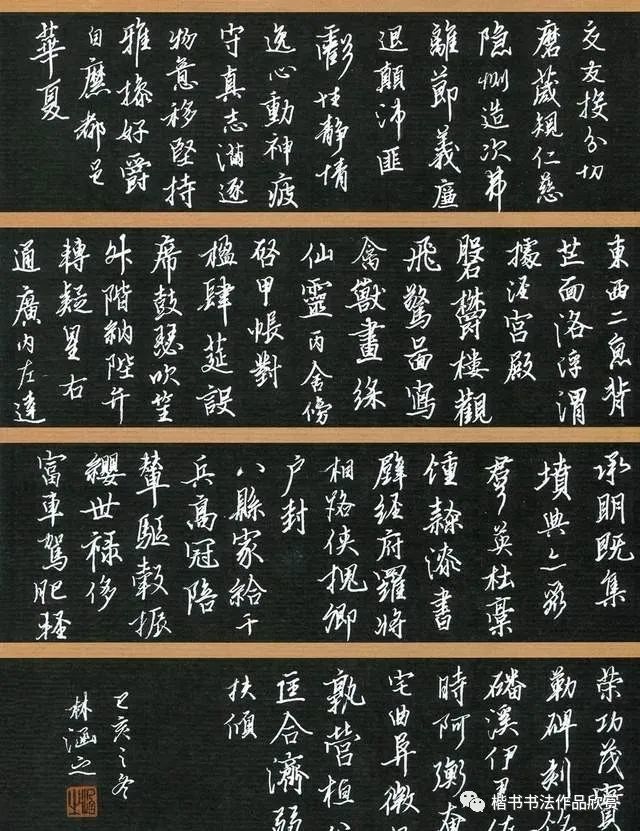 交友投分切
磨箴規仁慈
隱惻造次弗
離節義廉
退顛沛匪
虧性靜情
逸心動神疲
守真志滿逐
物意移堅持
雅操好爵
自縻都邑
華夏
東西二京背
芒面洛浮渭
據涇宮殿
盤鬱樓觀
飛驚圖寫
禽獸畫綵
仙靈丙舍傍
啓甲帳對
楹肆筵設
席鼓瑟吹笙
升階納陛弁
轉疑星右
通廣內左達
承明既集
墳典亦聚
群英杜稾
鍾隸漆書
壁經府羅將
相路俠槐卿
户封
八縣家給千
兵高冠陪
輦驅轂振
纓世祿侈
富車駕肥輕
策功茂實
勒碑刻銘
磻溪伊尹佐
時阿衡奄
宅曲阜微旦
孰營桓公
匡合濟弱
扶傾
己亥之冬
林涵之
楷书书法作品欣赏